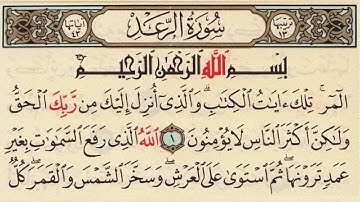 ترتيبها ١٣ سورة الرعد آياتها ٤٣
بسم الله الرحمن الرحيم
الٓمٓر ۚ تِلْكَ ءَايَٰتُ ٱلْكِتَٰبِ ۗ وَٱلَّذِىٓ أُنزِلَ إِلَيْكَ مِن رَّبِّكَ ٱلْحَقُّ
وَلَٰكِنَّ أَكْثَرَ ٱلنَّاسِ لَا يُؤْمِنُونَ ١ ٱللَّهُ ٱلَّذِى رَفَعَ ٱلسَّمَٰوَٰتِ بِغَيْرِ
عَمَدٍ تَرَوْنَهَا ۖ ثُمَّ ٱسْتَوَىٰ عَلَى ٱلْعَرْشِ ۖ وَسَخَّرَ ٱلشَّمْسَ وَٱلْقَمَرَ ۖ كُلٌّ